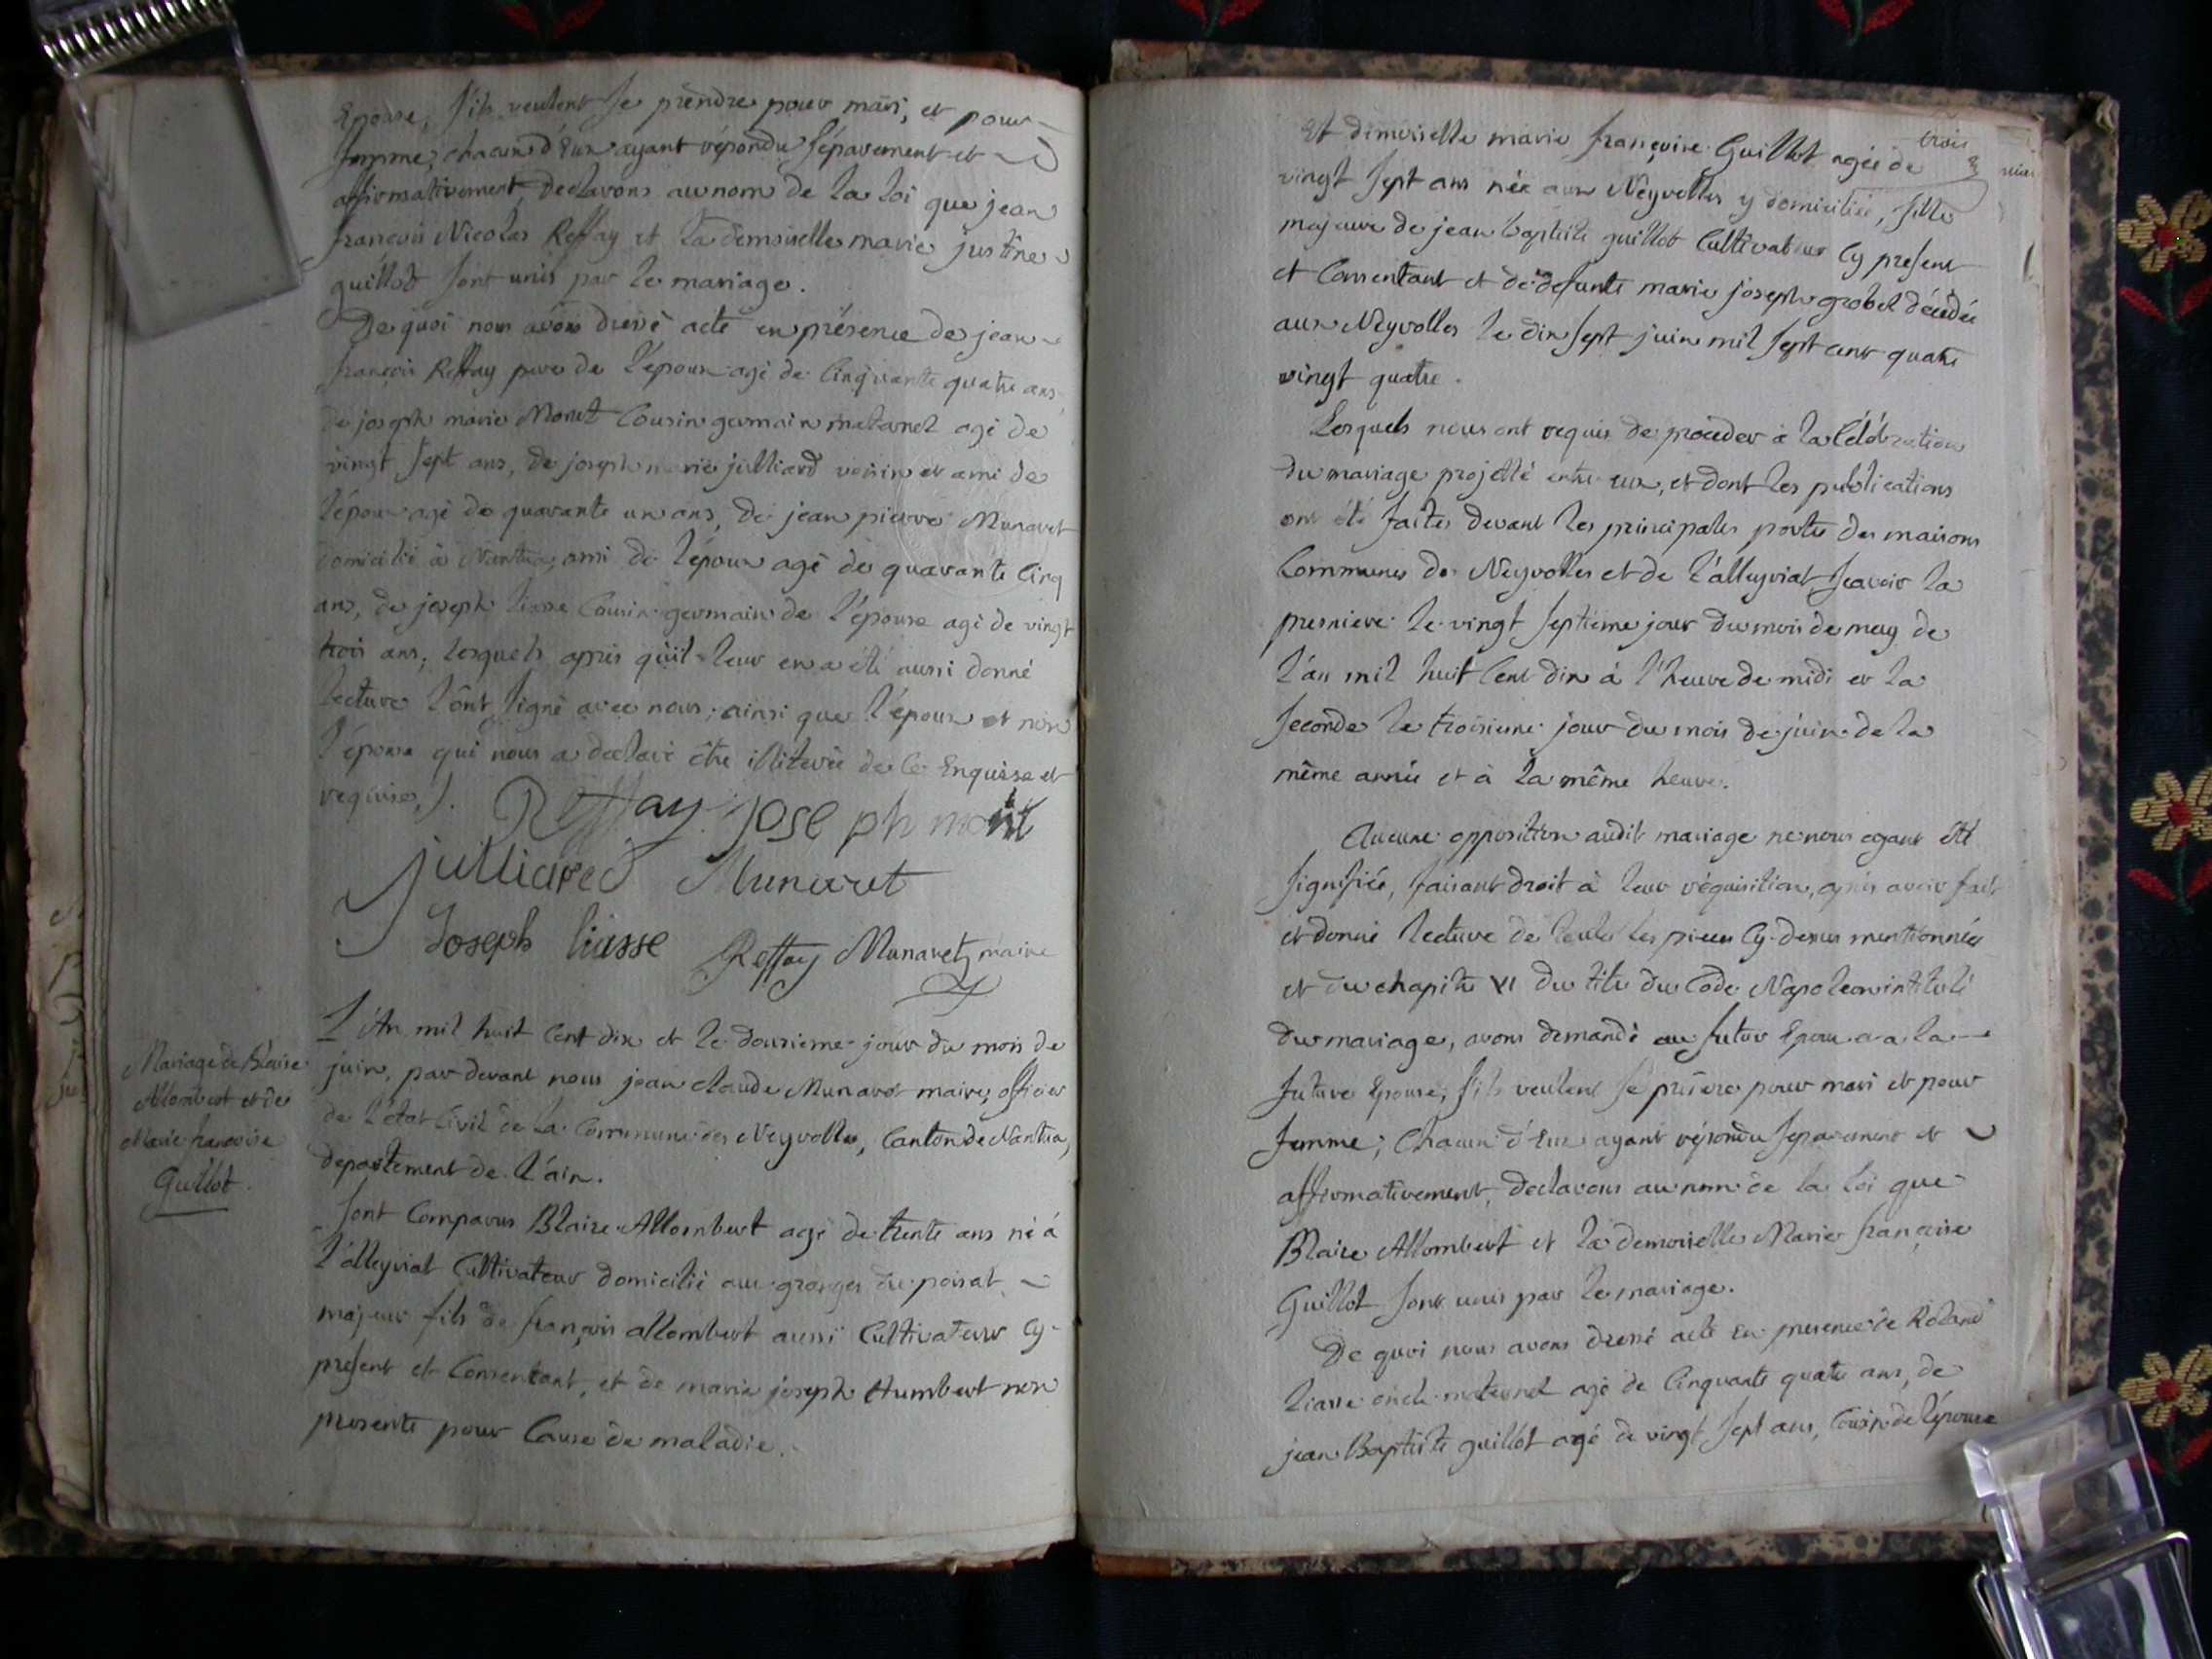 Epouse, s'ils veulent se prendre pour mari, et pour
femme, chacun d'Eux ayant répondu séparement et
affirmativement, declarons au nom de la loi que jean
françois Nicolas Reffay et la demoiselle marie justine
guillot sont unis par le mariage.
De quoi nous avons dressé acte en présence de jean
françois Reffay pere de l'époux agé de Cinquante quatre ans,
de joseph marie Moret Cousin germain maternel agé de
vingt sept ans, de joseph marie julliard voisin et ami de
l'époux agé de quarante un ans, de jean pierre Munaret
domicilié à Nantua, ami de l'époux agé de quarante Cinq
ans, de joseph liasse Cousin germain de l'épouse agé de vingt
trois ans, lesquels après qu'il leur en a été aussi donné
lecture l'ont signé avec nous, ainsi que l'époux et non
l'épouse qui nous a declaré être illiterée de ce Enquise et
requise,).
Reffay joseph
julliard Munaret
Joseph liasse Reffay Munaret maire
Mariage de Blaise
Allombert et de
Marie francoise
Guillot.
L'An mil huit Cent dix et le douzieme jour du mois de
juin, par devant nous jean claude Munaret maire, officier
de l'état Civil de la Commune des Neyrolles, Canton de Nantua,
departement de l'ain.
Sont Comparus Blaise Allombert agé de trente ans né à
l'alleyriat Cultivateur domicilié aux granges du poizat
majeur fils de françois allombert aussi Cultivateur Cy-
present et Consentant, et de marie joseph Humbert non
presente pour Cause de maladie.
trois
Et demoiselle marie françoise Guillot agée de
vingt sept ans née aux Neyrolles y domiciliée, fille
majeure de jean baptiste guillot Cultivateur Cy present
et Consentant et de defunte marie joseph grobel décédée
aux Neyrolles le dix sept juin mil sept cent quatre
vingt quatre.
Lesquels nous ont requis de proceder à la Célébration
du mariage projetté entre eux, et dont les publications
ont été faites devant les principales portes des maisons
Communes de Neyrolles et de l'alleyriat sçavoir la
premiere le vingt septieme jour du mois de may de
l'an mil huit Cent dix à l'heure de midi et la
seconde le troisieme jour du mois de juin de la
même année et à la même heure.
Aucune opposition audit mariage ne nous ayant été
signifiée, faisant droit à leur réquisition, après avoir fait
et donné lecture de toutes les pieces Cy-dessus mentionnées
et du chapitre VI du titre du Code Napoleon intitulé
du mariage, avons demandé au futur Epoux et a la
future Epouse, s'ils veulent se prendre pour mari et pour
femme; Chacun d'Eux ayant répondu separement et
affirmativement, declarons au nom de la loi que
Blaise Allombert et la demoiselle Marie françoise
Guillot sont unis par le mariage.
De quoi nous avons dressé acte En presence de Roland
liasse oncle maternel agé de Cinquante quatre ans, de
jean Baptiste guillot agé de vingt sept ans, Cousin de l'épouse